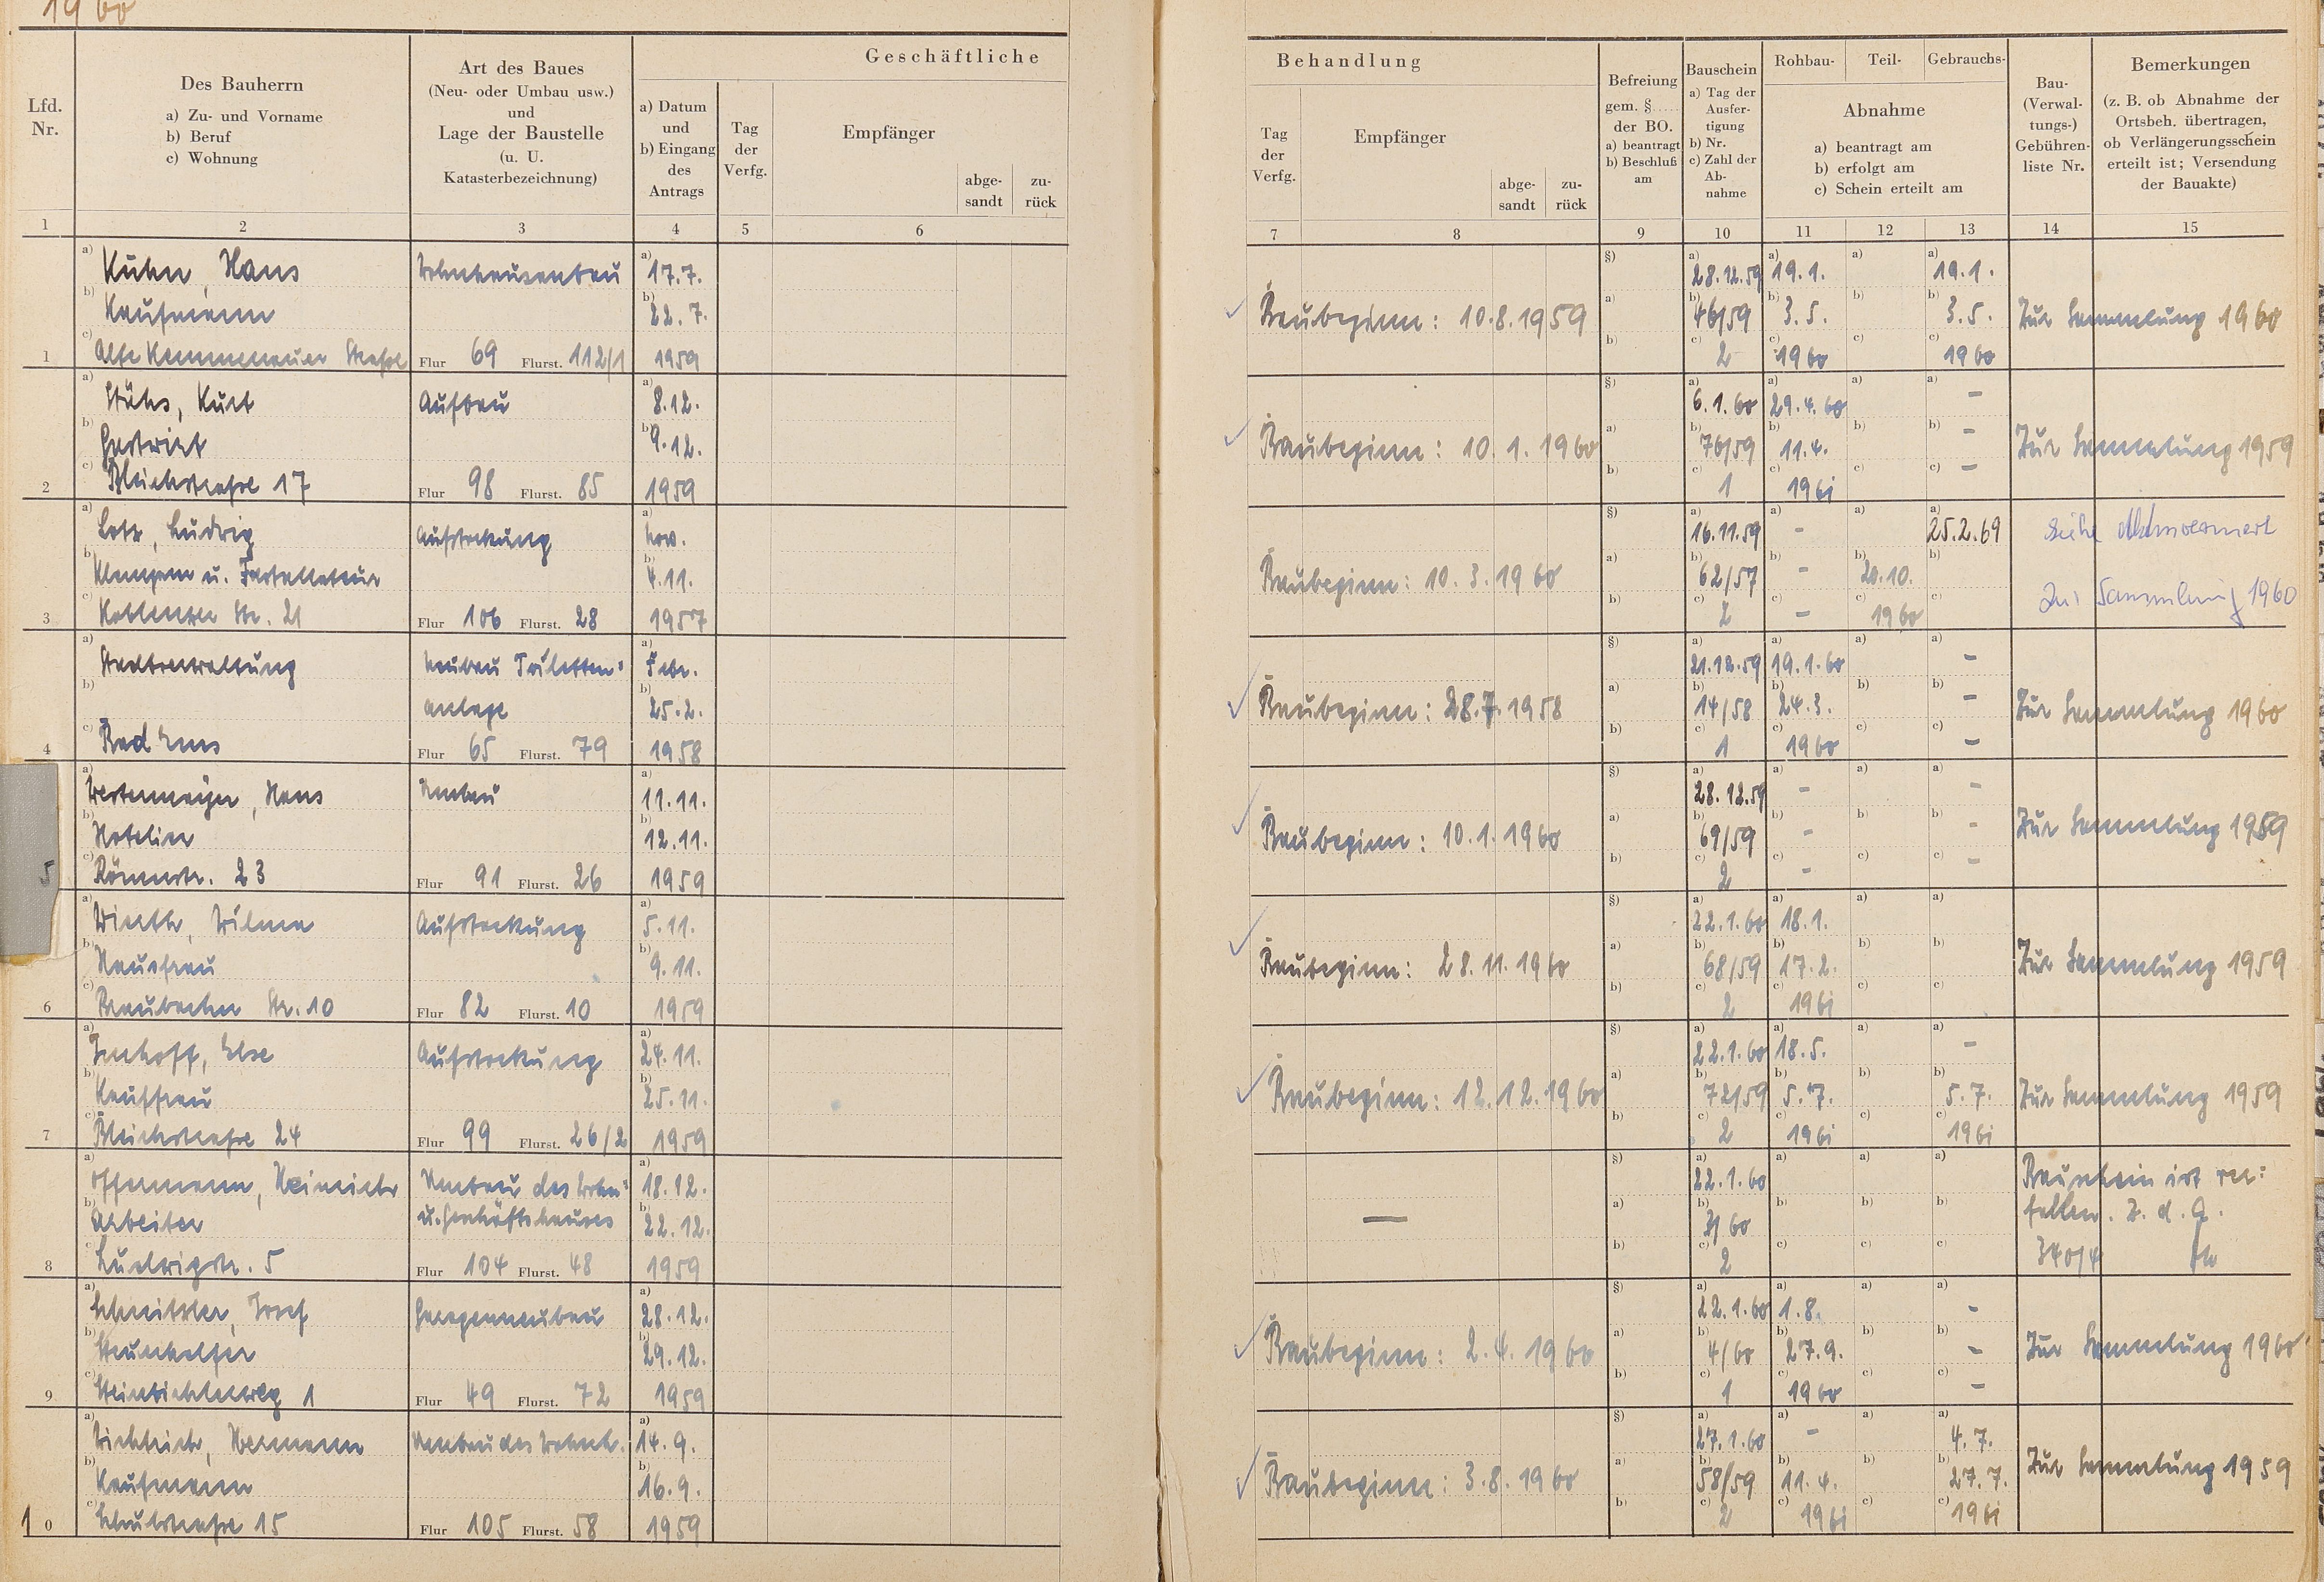 1960
Lfd. Nr.
Des Bauherrn
a) Zu- und Vorname
b) Beruf
c) Wohnung
Art des Baues
(Neu- oder Umbau usw.)
und
Lage der Baustelle
(u. U.
Katasterbezeichnung)
Geschäftliche
a) Datum
und
b) Eingang
des
Antrags
Tag
der
Verfg.
Empfänger
abge-
sandt
zu-
rück
Behandlung
Tag
der
Verfg.
Empfänger
abge-
sandt
zu-
rück
Befreiung
gem. §
der BO.
a) beantragt
b) Beschluß
am
Bauschein
a) Tag der
Ausfer-
tigung
b) Nr.
c) Zahl der
Ab-
nahme
Rohbau-
Teil-
Gebrauchs-
Abnahme
a) beantragt am
b) erfolgt am
c) Schein erteilt am
Bau-
(Verwal-
tungs-)
Gebühren-
liste Nr.
Bemerkungen
(z. B. ob Abnahme der
Ortsbeh. übertragen,
ob Verlängerungsschein
erteilt ist; Versendung
der Bauakte)
1 2 3 4 5 6 7 8 9 10 11 12 13 14 15
a) Kuhn, Hans a) 17.7. §) a) 28.12.59 a) 19.1. a) a) 19.1.
b) Kaufmann b) 22.7. Baubeginn: 10.8.1959 a) b) 46/59 b) 3.5. b) b) 3.5. Zur Sammlung 1960
1 c) Alte Kemmenauer Straße Flur 69 Flurst. 112/1 1959 b) c) 2 c) 1960 c) c) 1960
a) Kurt Aufbau a) 8.12. §) a) 6.1.60 a) 29.4.60 a) a) –
b) Gastwirt b) 9.12. Baubeginn: 10.1.1960 a) b) 76/59 b) 11.4. b) b) – Zur Sammlung 1959
2 c) Bleichstraße 17 Flur 98 Flurst. 85 1959 b) c) 1 c) 1961 c) c) –
a) Lotz, Ludwig Aufstockung a) Nov. §) a) 16.11.59 a) – a) a) 25.2.69 Siehe
b) u. b) 4.11. Baubeginn: 10.3.1960 a) b) 62/57 b) – b) 20.10. b)
3 c) Koblenzer Str. 21 Flur 106 Flurst. 28 1957 b) c) 2 c) – c) 1960 c) Zur Sammlung 1960
a) Stadtverwaltung Neubau Toiletten= a) Febr. §) a) 21.12.59 a) 19.1.60 a) a) –
b) anlage b) 25.2. Baubeginn: 28.7.1958 a) b) 14/58 b) 24.3. b) b) – Zur Sammlung 1960
4 c) Bad Ems Flur 65 Flurst. 79 1958 b) c) 1 c) 1960 c) c) –
a) Hans Umbau a) 11.11. §) a) 28.12.59 a) – a) a) –
b) Hotelier b) 12.11. Baubeginn: 10.1.1960 a) b) 69/59 b) – b) b) – Zur Sammlung 1959
5 c) Römerstr. 23 Flur 91 Flurst. 26 1959 b) c) 2 c) – c) c) –
a) Wilma Aufstockung a) 5.11. §) a) 22.1.60 a) 18.1. a) a)
b) Hausfrau b) 9.11. Baubeginn: 28.11.1960 a) b) 68/59 b) 17.2. b) b) Zur Sammlung 1959
6 c) Braubacher Str. 10 Flur 82 Flurst. 10 1959 b) c) 2 c) 1961 c) c)
a) Imhoff, Else Aufstockung a) 24.11. §) a) 22.1.60 a) 18.5. a) a) –
b) Kauffrau b) 25.11. Baubeginn: 12.12.1960 a) b) 72/59 b) 5.7. b) b) 5.7. Zur Sammlung 1959
7 c) Bleichstraße 24 Flur 99 Flurst. 26/2 1959 b) c) 2 c) 1961 c) c) 1961
a) Offermann, Heinrich Umbau des Wohn= a) 18.12. §) a) 22.1.60 a) a) a) Bauschein ist ver=
b) Arbeiter u. Geschäftshauses b) 22.12. — a) b) 3/60 b) b) b) fallen. Z. d. A.
8 c) Ludwigstr. 5 Flur 104 Flurst. 48 1959 b) c) 2 c) c) c) 340/4
a) Schnitzler, Josef Garagenneubau a) 28.12. §) a) 22.1.60 a) 1.8. a) a) –
b) Steuerhelfer b) 29.12. Baubeginn: 2.4.1960 a) b) 4/60 b) 27.9. b) b) – Zur Sammlung 1960
9 c) 1 Flur 49 Flurst. 72 1959 b) c) 1 c) 1960 c) c) –
a) Hermann Umbau des Wohnh. a) 14.9. §) a) 27.1.60 a) – a) a) 4.7.
b) Kaufmann b) 16.9. Baubeginn: 3.8.1960 a) b) 58/59 b) 11.4. b) b) 27.7. Zur Sammlung 1959
10 c) Schulstraße 15 Flur 105 Flurst. 58 1959 b) c) 2 c) 1961 c) c) 1961